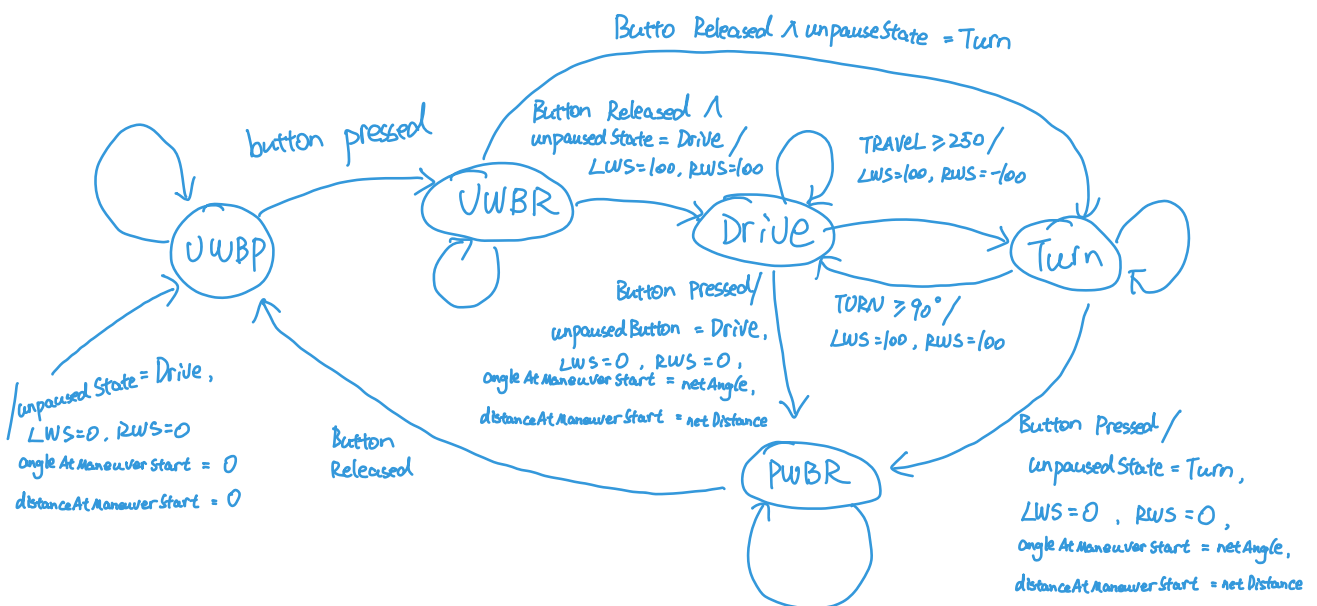 Butto Released ∧ unpauseState = Turn
button pressed
Button Released ∧
unpausedState = Drive /
LWS=100, RWS=100
TRAVEL ≥ 250 /
LWS=100, RWS=-100
UWBP
UWBR
Drive
Turn
Button Pressed/
unpausedButton = Drive,
LWS=0, RWS=0,
angleAtManeuverStart = netAngle,
distanceAtManeuverStart = netDistance
TURN ≥ 90° /
LWS=100, RWS=100
/unpausedState = Drive,
LWS=0, RWS=0
angleAtManeuverStart = 0
distanceAtManeuverStart = 0
Button
Released
PWBR
Button Pressed /
unpausedState = Turn,
LWS=0, RWS=0,
angleAtManeuverStart = netAngle,
distanceAtManeuverStart = netDistance